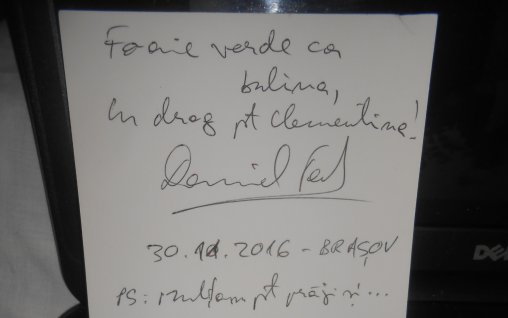 Foaie verde ca
bulina,
Cu drag pt Clementina!
Daniel
30.11.2016 - BRAȘOV
PS: Mulțam pt prăji și...
DELL